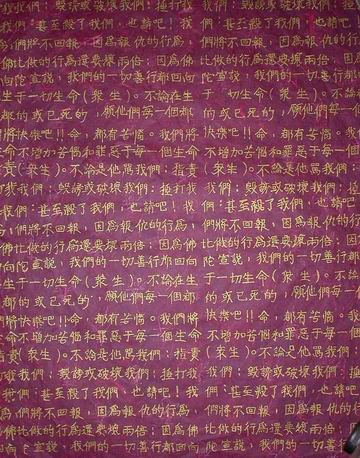 我們；毀謗或破壞我們；捶打我們；毀謗或破壞我們；捶打我
們；甚至殺了我們，也請吧！我們；甚至殺了我們，也請吧！我
們將不回報，因爲報仇的行爲們將不回報，因爲報仇的行爲
比做的行爲還要壞兩倍；因爲佛比做的行爲還要壞兩倍；因爲佛
向陀宣說，我們的一切善行都回向陀宣說，我們的一切善行都回向
生于一切生命(衆生)。不論在生于一切生命(衆生)。不論在生
都的或已死的，願他們每一個都的或已死的，願他們每一個都
將快樂吧!!命，都有苦惱。我們將快樂吧!!命，都有苦惱。我們將
命不增加苦惱和罪惡于每一個生命不增加苦惱和罪惡于每一個生命
責(衆生)。不論是他罵我們；指責(衆生)。不論是他罵我們；指責
我們；毀謗或破壞我們；捶打我們；毀謗或破壞我們；捶打我
我們；甚至殺了我們，也請吧！我們；甚至殺了我們，也請吧！我
們將不回報，因爲報仇的行爲，們將不回報，因爲報仇的行爲，
佛比做的行爲還要壞兩倍；因爲佛比做的行爲還要壞兩倍；因爲佛
向陀宣說，我們的一切善行都回向陀宣說，我們的一切善行都回向
生于一切生命(衆生)。不論在生于一切生命(衆生)。不論在生
都的或已死的，願他們每一個都的或已死的，願他們每一個都
將快樂吧!!命，都有苦惱。我們將快樂吧!!命，都有苦惱。我們將
命不增加苦惱和罪惡于每一個生命不增加苦惱和罪惡于每一個生命
責(衆生)。不論是他罵我們；指責(衆生)。不論是他罵我們；指責
我們；毀謗或破壞我們；捶打我們；毀謗或破壞我們；捶打我
我們；甚至殺了我們，也請吧！我們；甚至殺了我們，也請吧！我
爲，們將不回報，因爲報仇的行爲們將不回報，因爲報仇的行爲
佛比做的行爲還要壞兩倍；因爲佛比做的行爲還要壞兩倍；因爲佛
向陀宣說，我們的一切善行都回向陀宣說，我們的一切善行都回向